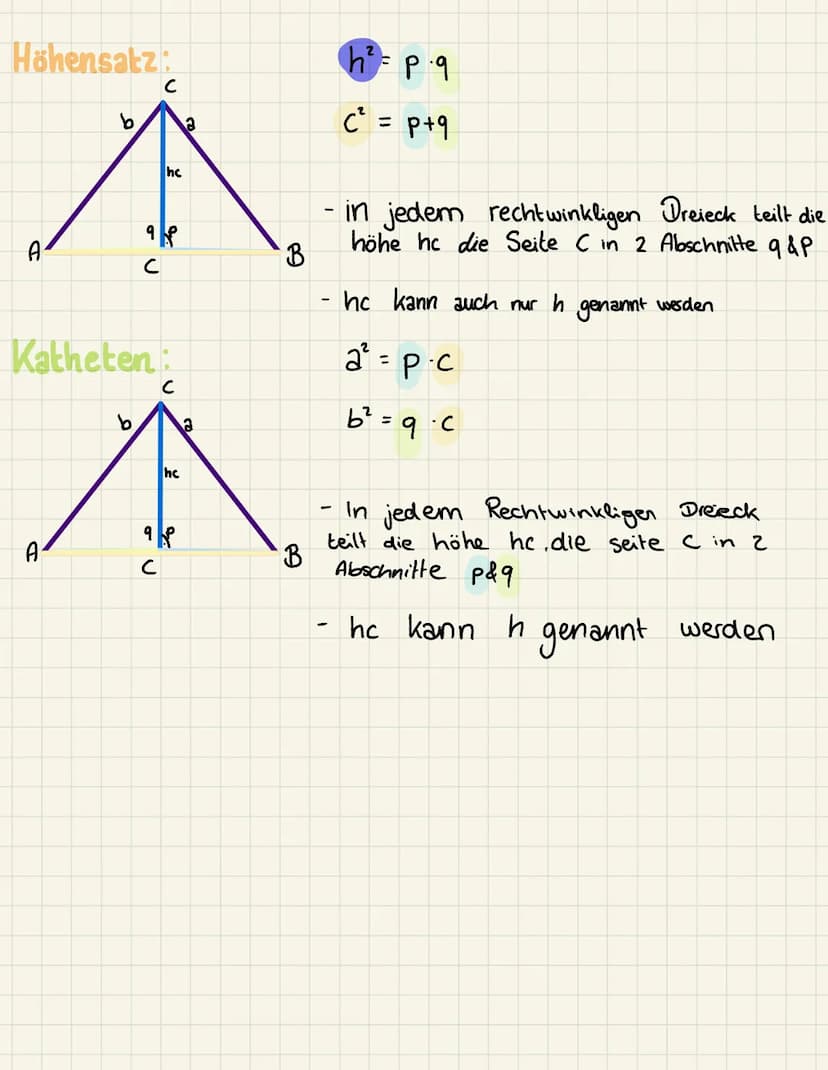 Höhensatz:
h² = p · q
c² = p+q
C
b
a
hc
q p
A
B
c
- in jedem rechtwinkligen Dreieck teilt die
höhe hc die Seite C in 2 Abschnitte q & p
- hc kann auch nur h genannt werden
Katheten:
a² = p · c
b² = q · c
C
b
a
hc
q p
A
B
c
- In jedem Rechtwinkligen Dreieck
teilt die höhe hc, die seite c in 2
Abschnitte p & q
- hc kann h genannt werden